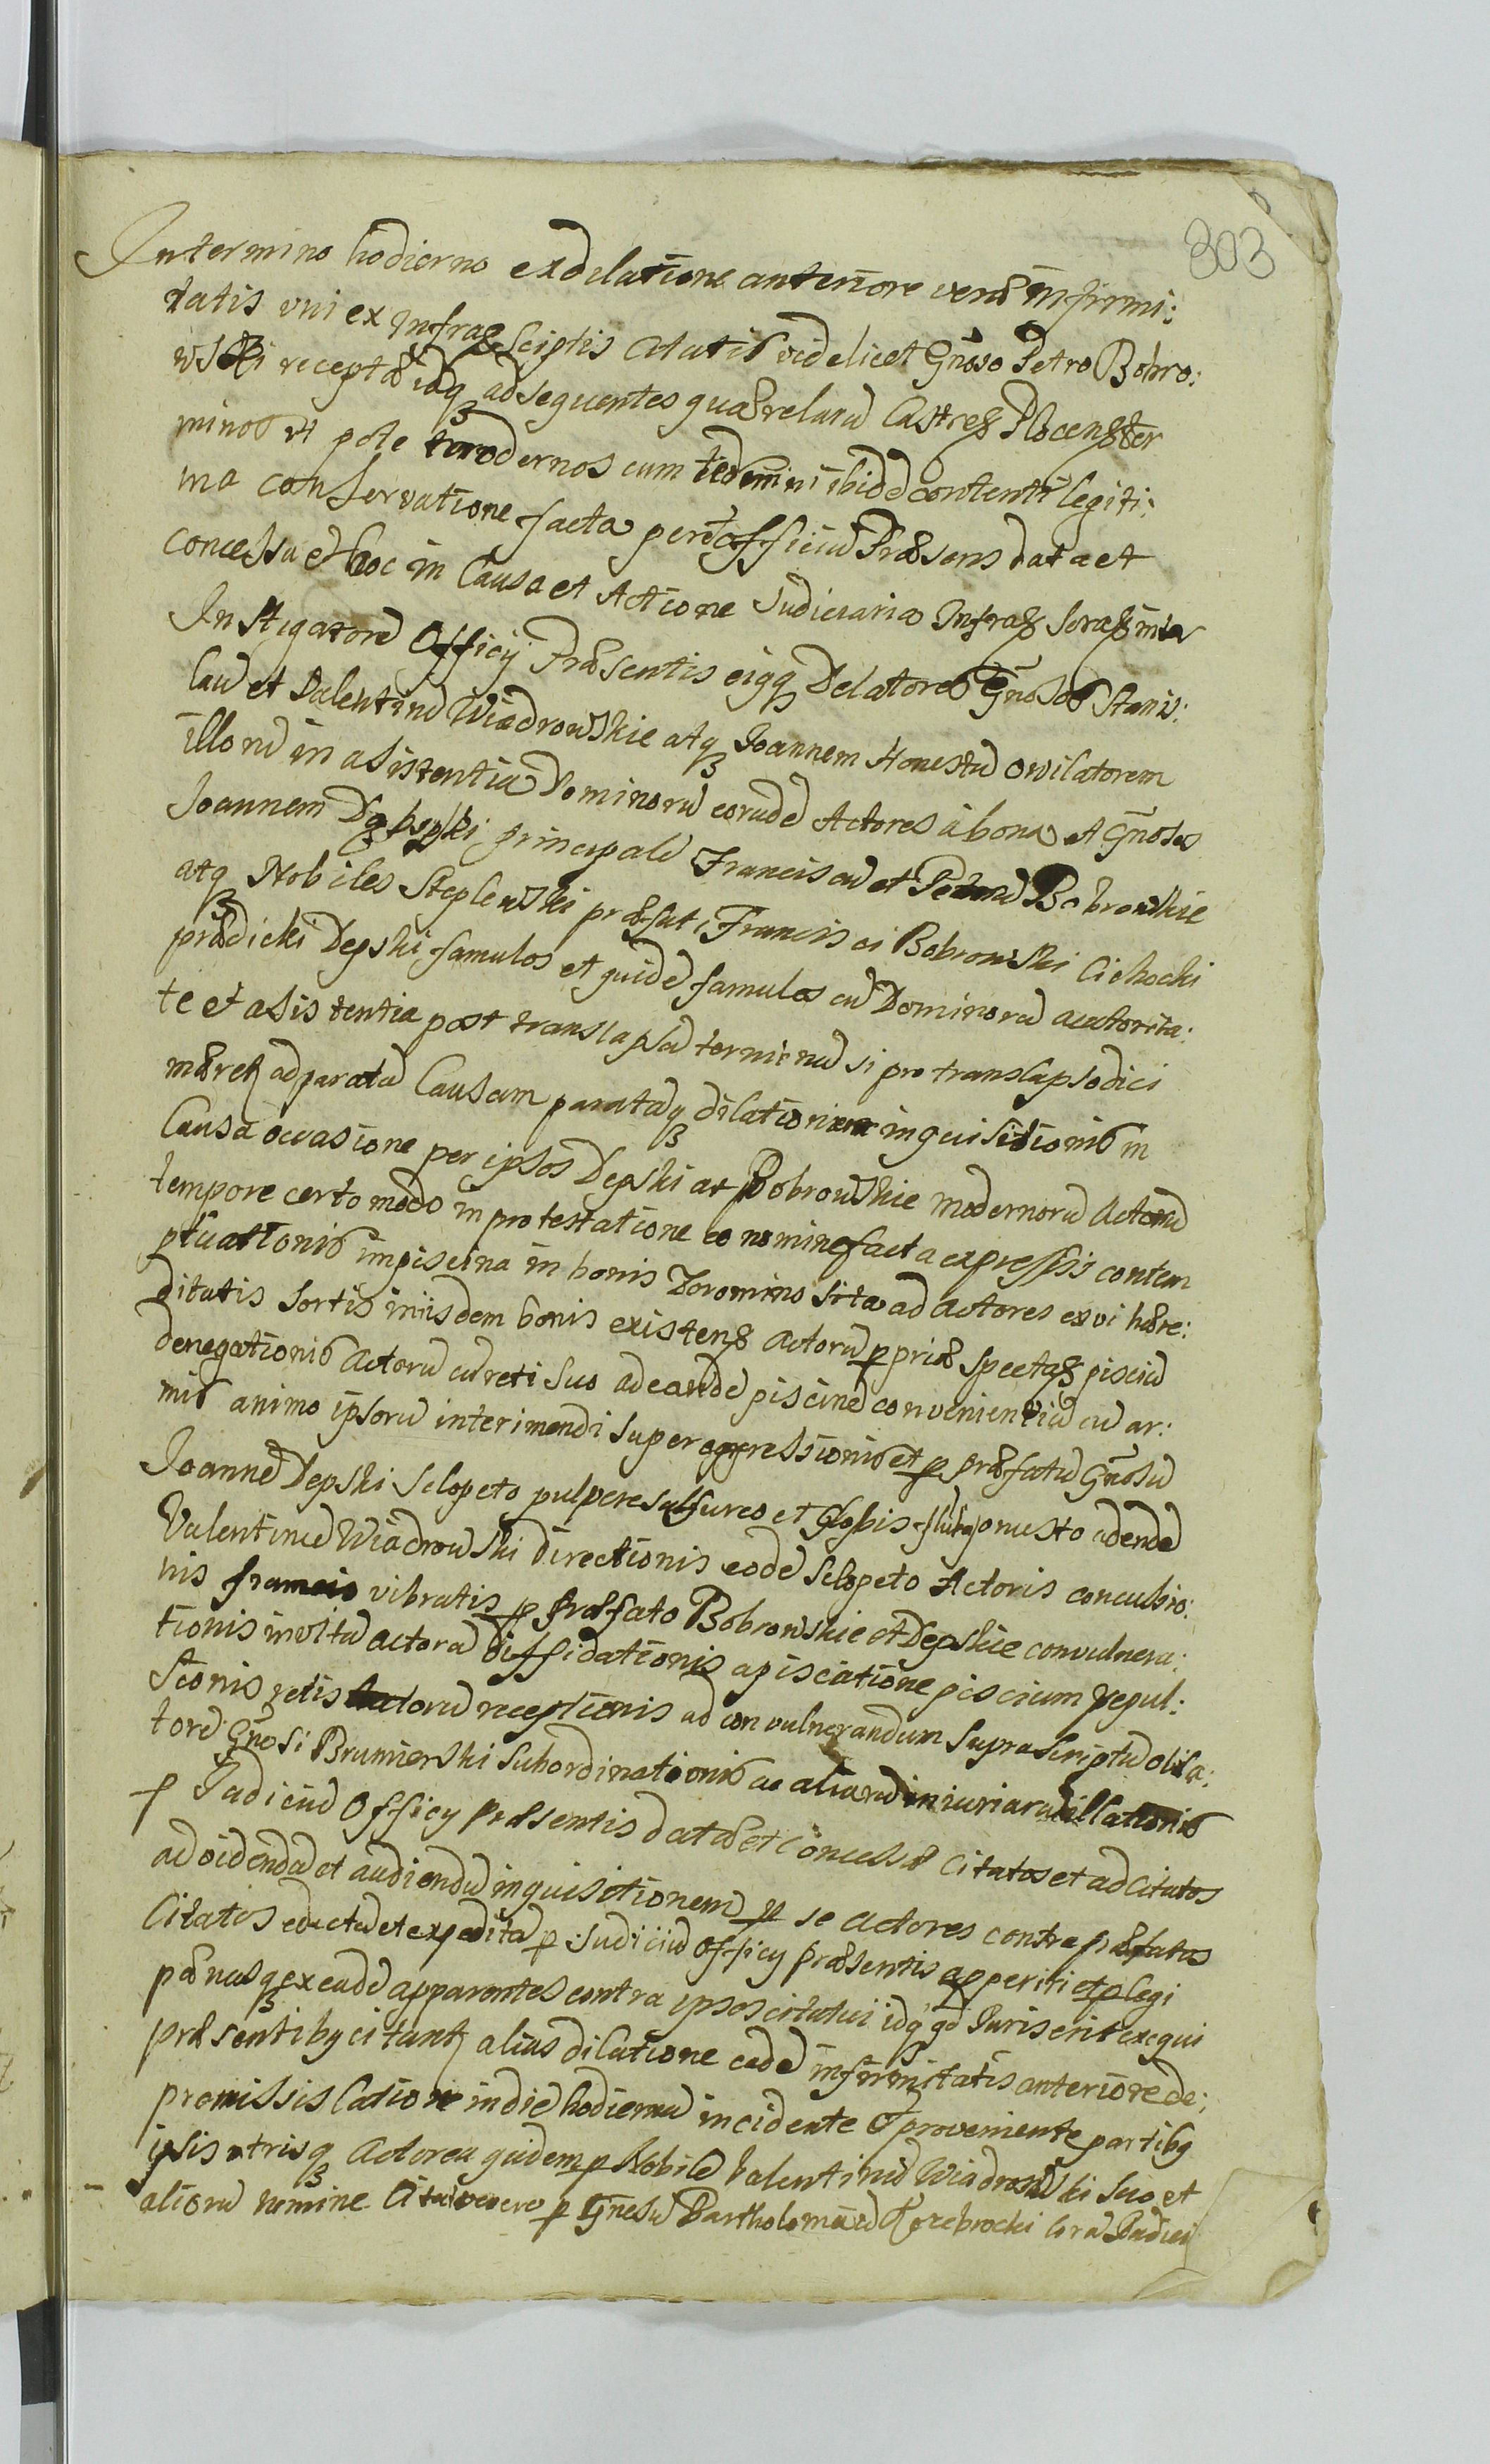 303
In termino hodierno ex dilatione anteriore veræ infirmi:
tatis uni ex infra scriptis Citatis videlicet Gnoso Petro Bobro:
wski receptæ idq3 ad sequentes quærelarum Castren Plocen ter
minos ut pote modernos cum ibidem contenti legiti:
ma conservatione facta per officium Præsens data et
concessa et hoc in Causa et Actione Judiciaria Infra inter
Instigatorem Officij Præsentis eiqq Delatores Gnosos Stanis:
laum et Valentinum Wiadrowskie atq3 Joannem Honestum ovilatorem
illorum in asistentia Dominorum eorundem Actores ab una et Gnosos
Joannem Dępski principalem Franciscum et Petrum Bobrowskie
atq3 Nobiles Steplewski præfati Francisci Bobrowski Cichocki
prædicti Depski famulos et quidem famulos cum Dominorum auctorita:
te et asistentia post translapsum terminum si pro translapso dici
mæretz ad paratam Causam paratamq3 dilationem inquisitionis in
Causa occasione per ipsos Depski ac Bobrowskie modernorum Actorum
tempore certo modo in protestatione eo nomine facta expressis contem
ptuationis in piscina in bonis Zoromino sita ad actores ex vi hære:
ditatis sortis iniisdem bonis existens actorum p priæ spectans piscium
denegationis Actorum cum reti suo ad eandem piscinam convenientium cum ar:
mis animo ipsorum interimendi super aggressionis et p præfatum Gnosum
Joannem Depski Sclopeto pulpere sulfureo et Globis onusto
Valentinum Wiadrowski directionis eodem Sclopeto Actoris concussio:
nis frameis vibratis p præfato Bobrowskie et Depskie convulnera:
tionis invitum actorum diffidationis a pisciatione piscium repul:
sionis retis Actorum receptionis ad convulnerandum suprascriptum ovila:
torem Gnosi Brumierski subordinationis ac aliarum iniuriarum illationis
p Judicium Officy præsentis datæ et concessæ citatos et adcitatos
ad videndum et audiendum inquisitionem p se actores contra præfatos
Citatos eductam et expeditam p Judicium officy præsentis apperiri et plegi
pænasq3 ex eadem apparentes contra ipsos citatui idq3 qd Juris erit exequi
præsentibq citantz alias dilatione eadem infirmitatis anteriore de:
promissis latione in diem hodiernum incidente et proveniente partibq
ipsis utrisq3 Actorea quidem p Nobilem Valentinum Wiadrowski suo et
aliorum nomine Citata vero p Gnosum Bartholomæum coram Judici